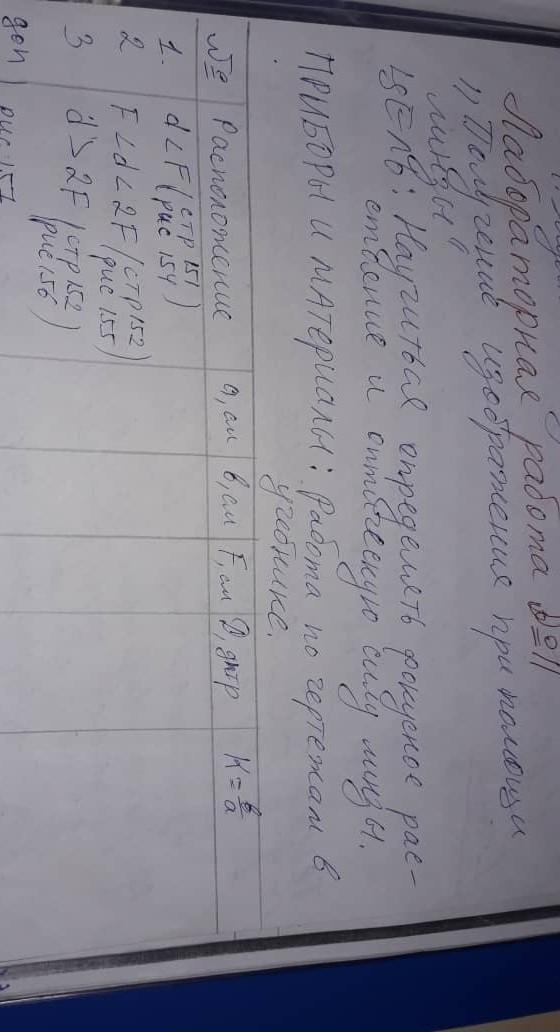 Лабораторная работа №11
"Получение изображения при помощи
линзы"
ЦЕЛЬ: Научиться определять фокусное рас-
стояние и оптическую силу линзы.
ПРИБОРЫ И МАТЕРИАЛЫ: Работа по чертежам в
учебнике.
№ Расположение а, см в, см F, см D, дптр К = в/а
1. d < F (стр 151 рис 154)
2 F < d < 2F (стр 152 рис 155)
3 d > 2F (стр 152 рис 156)
доп) рис 157